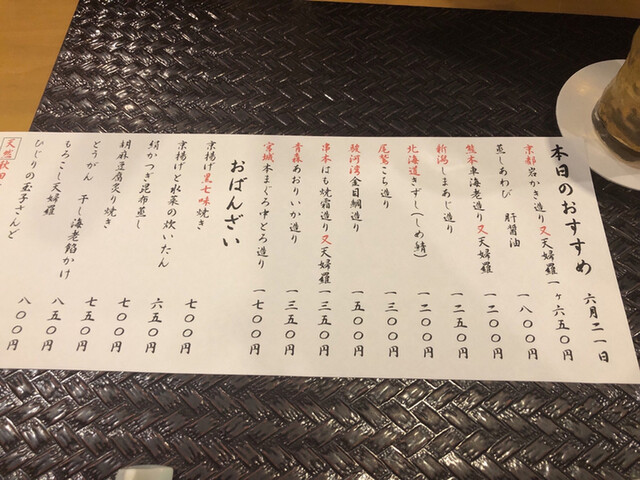 本日のおすすめ 六月二一日
京都岩かき造り又天婦羅 一ヶ六五〇円
蒸しあわび 肝醤油 一八〇〇円
熊本東海老造り又天婦羅 一二〇〇円
新潟しまあじ造り 一二五〇円
北海道きずし(しめ鯖) 一二〇〇円
尾鷲こち造り 一三〇〇円
駿河湾金目鯛造り 一五〇〇円
串本はも焼霜造り又天婦羅 一三五〇円
青森あおりいか造り 一三五〇円
宮城本まぐろ中とろ造り 一七〇〇円
おばんざい
京揚げ黒七味焼き 七〇〇円
京揚げと水菜の炊いたん 七〇〇円
絹かつぎ昆布蒸し 六五〇円
胡麻豆腐炙り焼き 七〇〇円
とうがん 干し海老餡かけ 七五〇円
もろこし天婦羅 八五〇円
ひじりの玉子さんど 八〇〇円
天然秋田